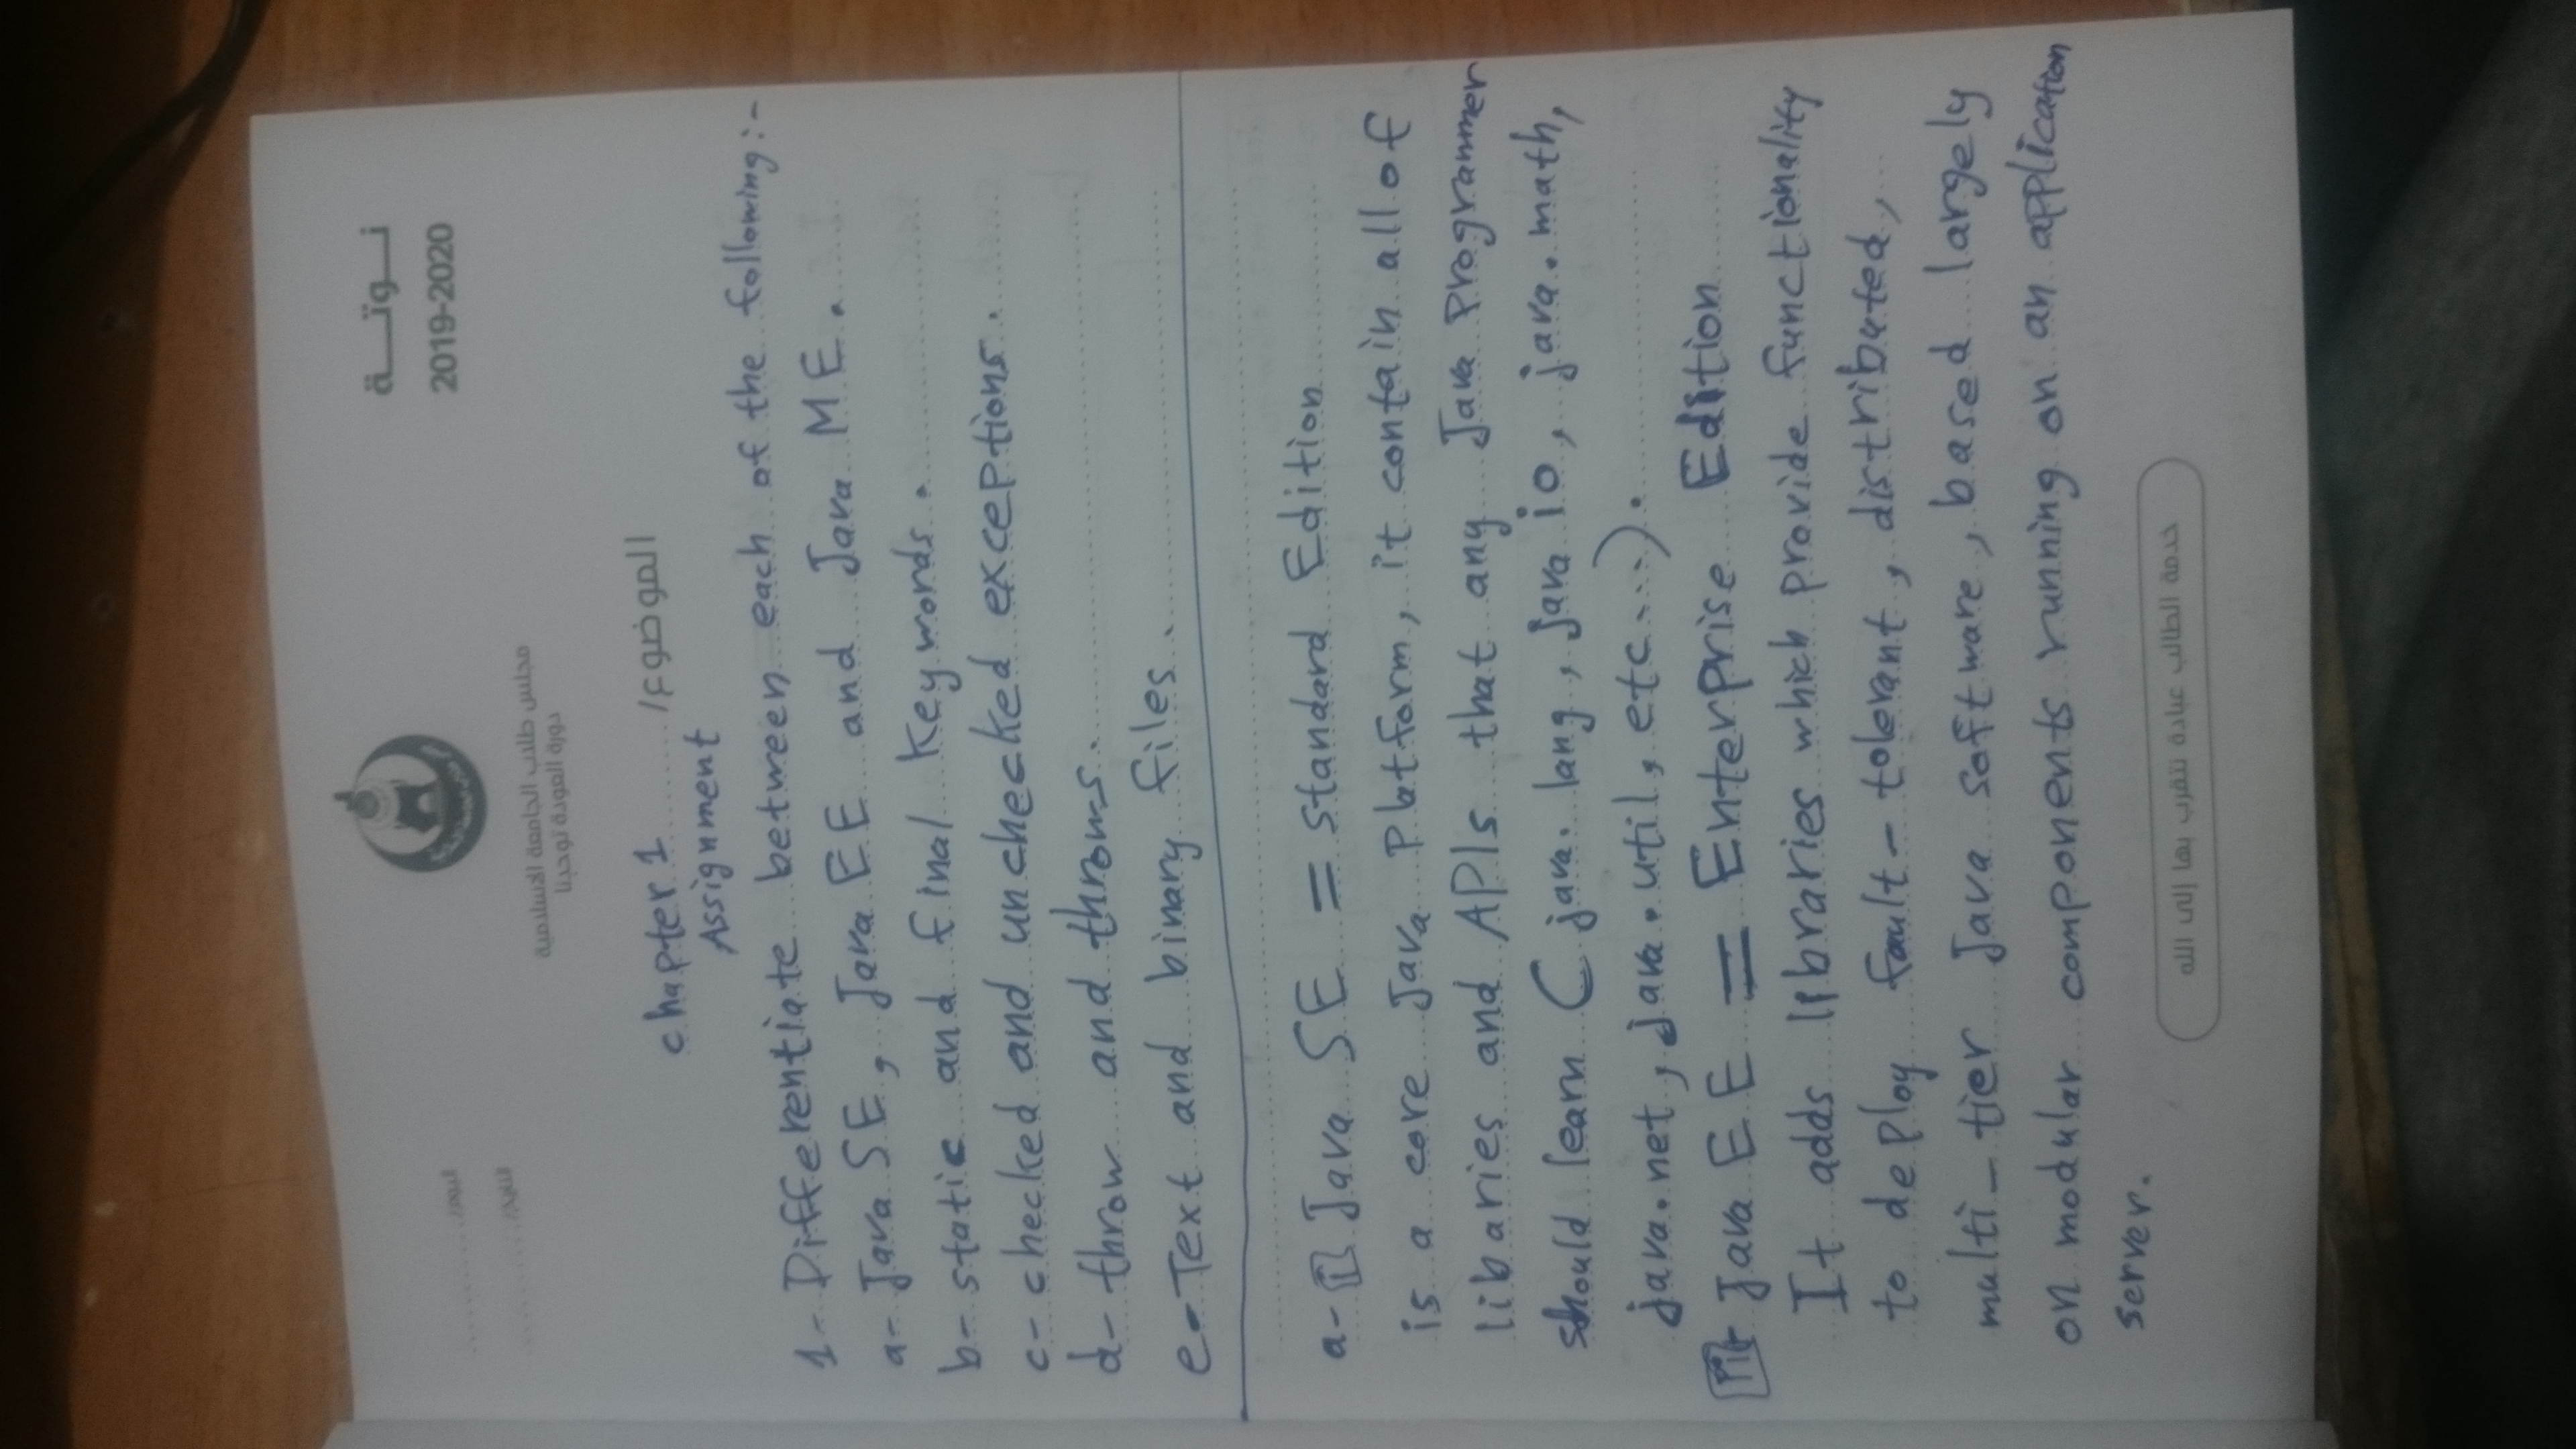 نوتة
2019-2020
اليوم/
التاريخ/
مجلس طلاب الجامعة الإسلامية
دورة العودة توحدنا
الموضوع/ chapter 1
Assignment
1- Differentiate between each of the following:-
a- Java SE, Java EE and Java ME.
b- static and final keywords.
c- checked and unchecked exceptions.
d- throw and throws.
e- Text and binary files.
a- i Java SE = Standard Edition
is a core Java Platform, it contain all of
libaries and APIs that any Java Programmer
should learn (java.lang, java io, java.math,
java.net, java.util, etc...).
Java EE = Enterprise Edition
It adds libraries which provide functionality
to deploy fault-tolerant, distributed,
multi-tier Java software, based largely
on modular components running on an application
server.
خدمة الطالب عبادة نتقرب بها إلى الله